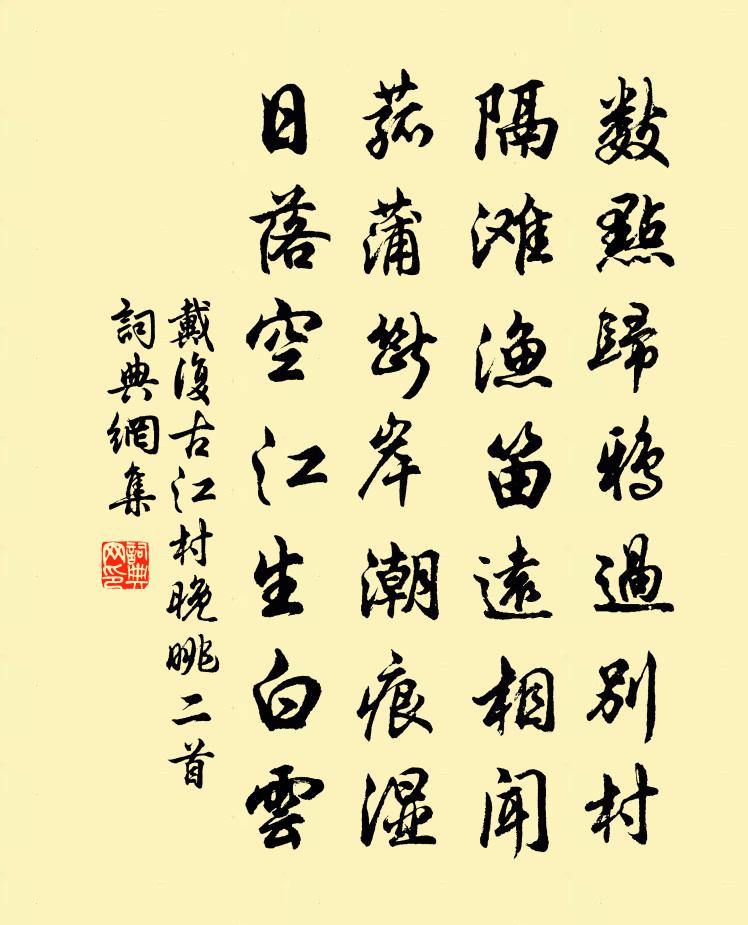 数點歸鴉過别村
隔滩漁笛遠相聞
菰蒲斷岸潮痕湿
日落空江生白雲
戴復古江村晚眺二首
詞典網集
詞典网印